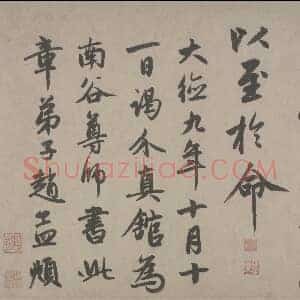 以至於命
大德九年十月十
一日謁介真館為
南谷尊師書此
章弟子趙孟頫
Shufaziliao.COM